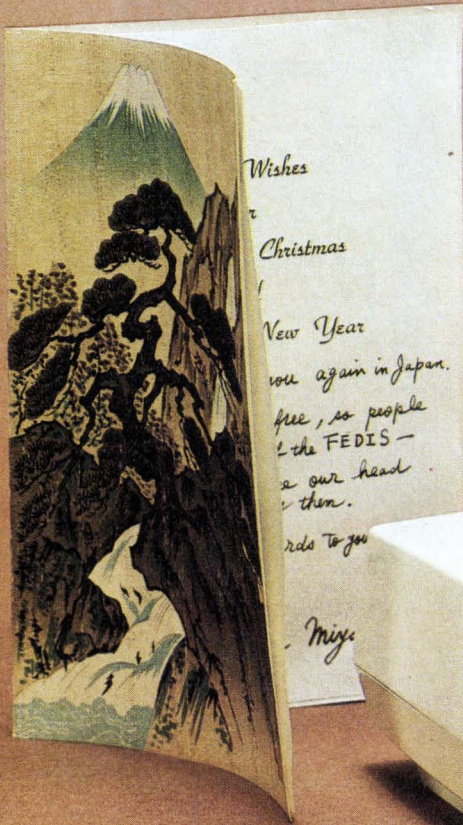 Wishes
r
Christmas
New Year
you again in Japan.
free, so people
the FEDIS —
e our head
then.
rds to you
. Miy